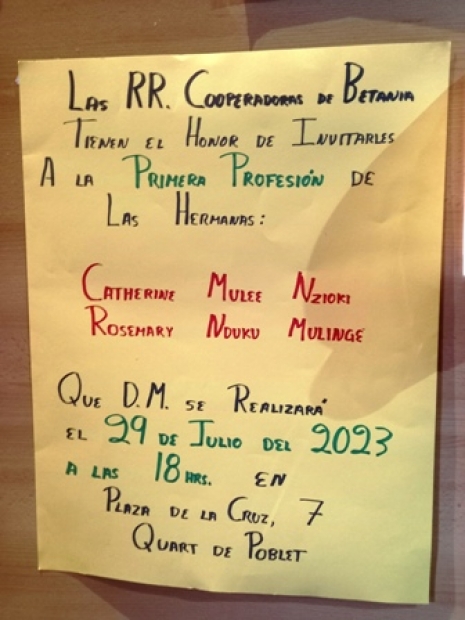 Las RR. Cooperadoras de Betania
Tienen el Honor de Invitarles
A la Primera Profesión de
Las Hermanas:
Catherine Mulee Nzioki
Rosemary Nduku Mulinge
Que D.M. se Realizará
el 29 de Julio del 2023
a las 18 hrs. en
Plaza de la Cruz, 7
Quart de Poblet